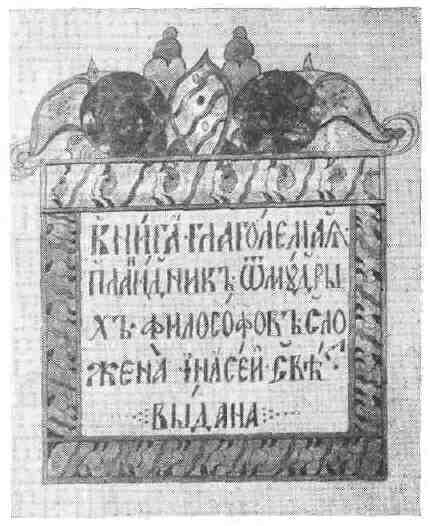 Кни́га · глаго́лемаѧ ·
пла́нидникъ · ѿ му́дры
хъ · филосо́фовъ сло
жена̀ · и на се́й · свѣтъ
вы́дана